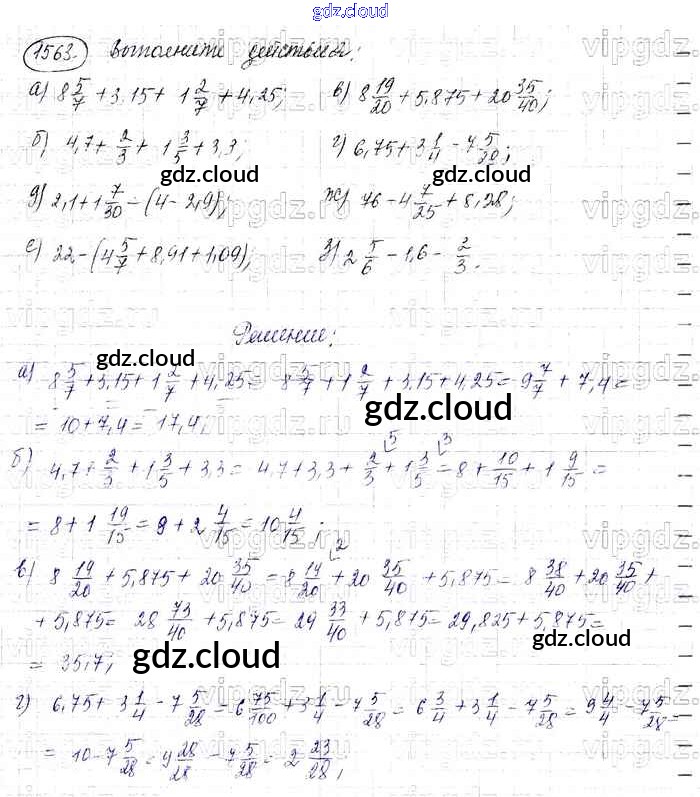 gdz.cloud
1563. Выполните действия:
а) 8 5/7 + 3,15 + 1 2/7 + 4,25; в) 8 19/20 + 5,875 + 20 35/40;
б) 4,7 + 2/3 + 1 3/5 + 3,3; г) 6,75 + 3 1/4 - 7 5/28;
gdz.cloud gdz.cloud
д) 2,1 + 1 7/30 - (4 - 2,9); ж) 76 - 4 7/25 + 8,28;
е) 22 - (4 5/7 + 8,91 + 1,09); з) 2 5/6 - 1,6 - 2/3.
Решение:
gdz.cloud
а) 8 5/7 + 3,15 + 1 2/7 + 4,25 = 8 5/7 + 1 2/7 + 3,15 + 4,25 = 9 7/7 + 7,4 =
gdz.cloud
= 10 + 7,4 = 17,4;
б) 4,7 + 2/3 + 1 3/5 + 3,3 = 4,7 + 3,3 + 2/3 + 1 3/5 = 8 + 10/15 + 1 9/15 =
= 8 + 1 19/15 = 9 + 2 4/15 = 10 4/15;
в) 8 19/20 + 5,875 + 20 35/40 = 8 19/20 + 20 35/40 + 5,875 = 8 38/40 + 20 35/40 +
+ 5,875 = 28 73/40 + 5,875 = 29 33/40 + 5,875 = 29,825 + 5,875 =
gdz.cloud
= 35,7;
gdz.cloud
г) 6,75 + 3 1/4 - 7 5/28 = 6 75/100 + 3 1/4 - 7 5/28 = 6 3/4 + 3 1/4 - 7 5/28 = 9 4/4 - 7 5/28 =
= 10 - 7 5/28 = 9 28/28 - 7 5/28 = 2 23/28;